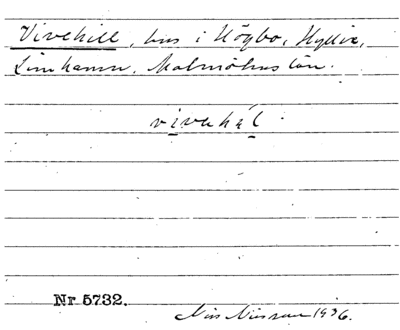 Vivehill, hus i Högbo, Hyllie,
Limhamn, Malmöhus län.
vivehil
Nr 5732.
Nils Nilsson 1936.